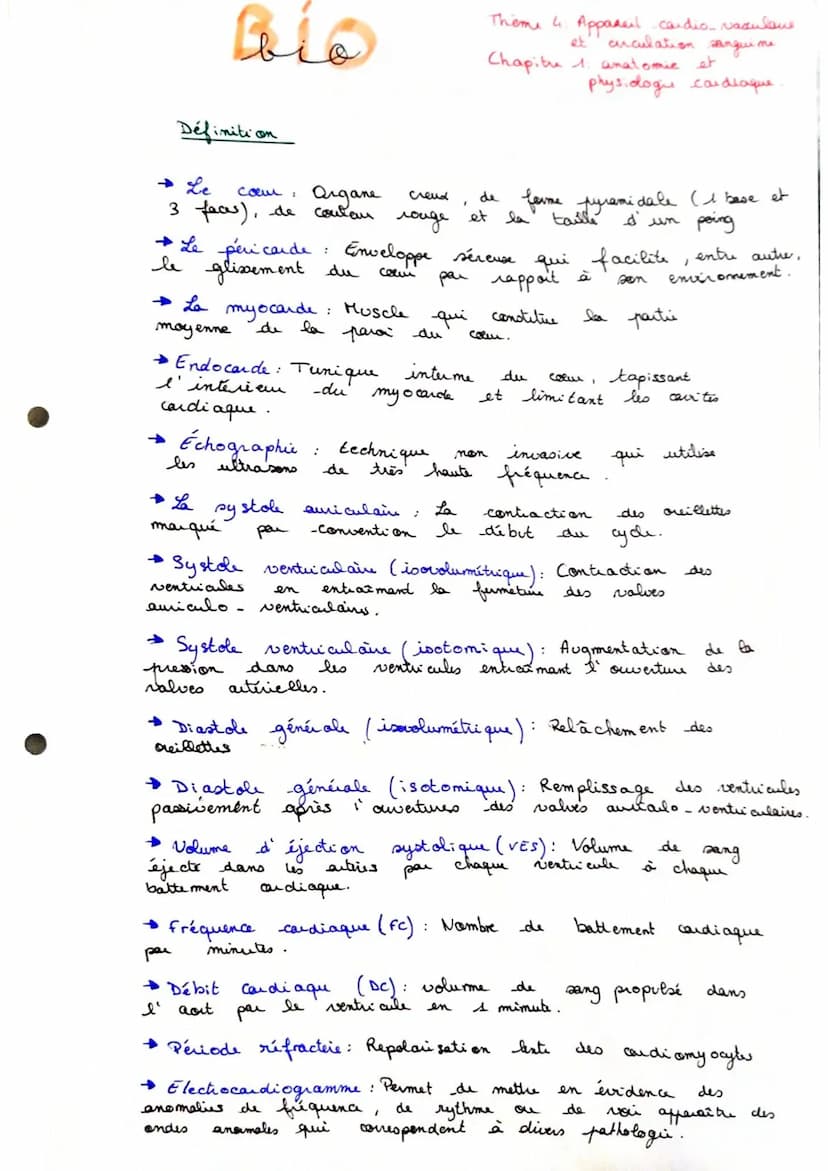 BIO
bio
Thème 4: Appareil cardio-vasculaire
et circulation sanguine
Chapitre 1: anatomie et
physiologie cardiaque.
Définition
→ Le cœur : Organe creux, de forme pyramidale (1 base et
3 faces), de couleur rouge et la taille d'un poing
→ Le péricarde : Enveloppe séreuse qui facilite, entre autre,
le glissement du cœur par rapport à son environnement.
→ La myocarde : Muscle qui constitue la partie
moyenne de la paroi du cœur.
→ Endocarde : Tunique interne du cœur, tapissant
l'intérieur du myocarde et limitant les cavités
cardiaque.
→ Échographie : technique non invasive qui utilise
les ultrasons de très haute fréquence.
→ La systole auriculaire : La contraction des oreillettes
marqué par convention le début du cycle.
→ Systole ventriculaire (isovolumétrique) : Contraction des
ventricules en entraînant la fermeture des valves
auriculo-ventriculaires.
→ Systole ventriculaire (isotomique) : Augmentation de la
pression dans les ventricules entraînant l'ouverture des
valves artérielles.
→ Diastole générale (isovolumétrique) : Relâchement des
oreillettes
→ Diastole générale (isotomique) : Remplissage des ventricules
passivement après l'ouvertures des valves auriculo-ventriculaires.
→ Volume d'éjection systolique (VES) : Volume de sang
éjecté dans les artères par chaque ventricule à chaque
battement cardiaque.
→ Fréquence cardiaque (FC) : Nombre de battement cardiaque
par minutes.
→ Débit cardiaque (DC) : volume de sang propulsé dans
l'aort par le ventricule en 1 minute.
→ Période réfractere : Repolarisation lente des cardiomyocytes
→ Electrocardiogramme : Permet de mettre en évidence des
anomalies de fréquence, de rythme ou de voir apparaître des
ondes anomales qui correspondent à divers pathologie.